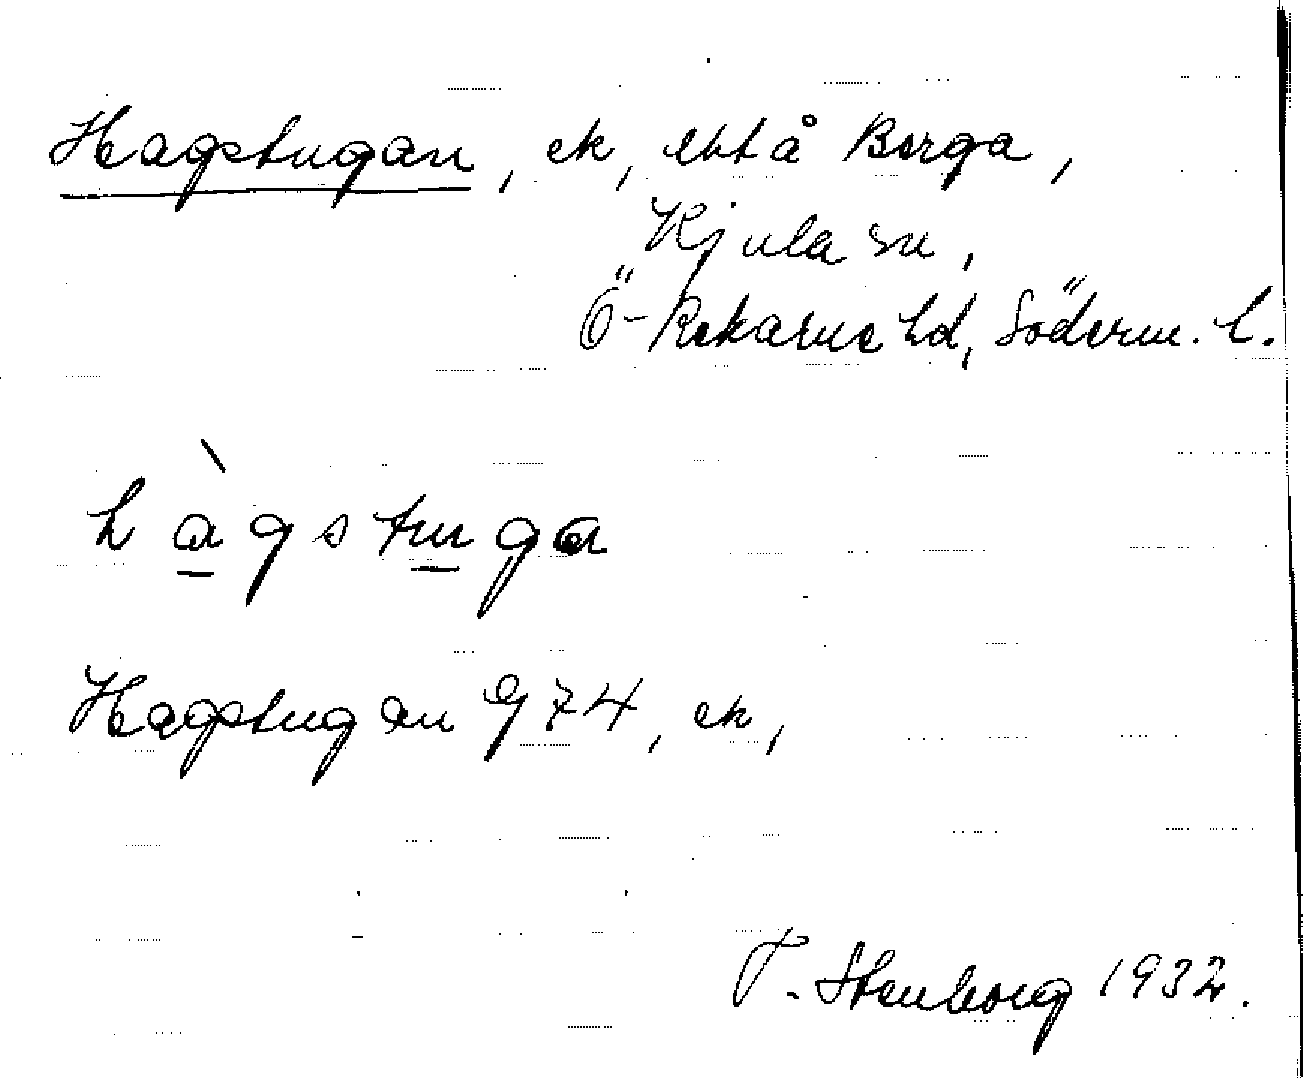 Hagstugan, ek, ebt å Berga,
Kjula sn,
Ö-Rekarne hd, Söderm. l.
hàgstuga
Hagstugan G74, ek,
T. Stenborg 1932.